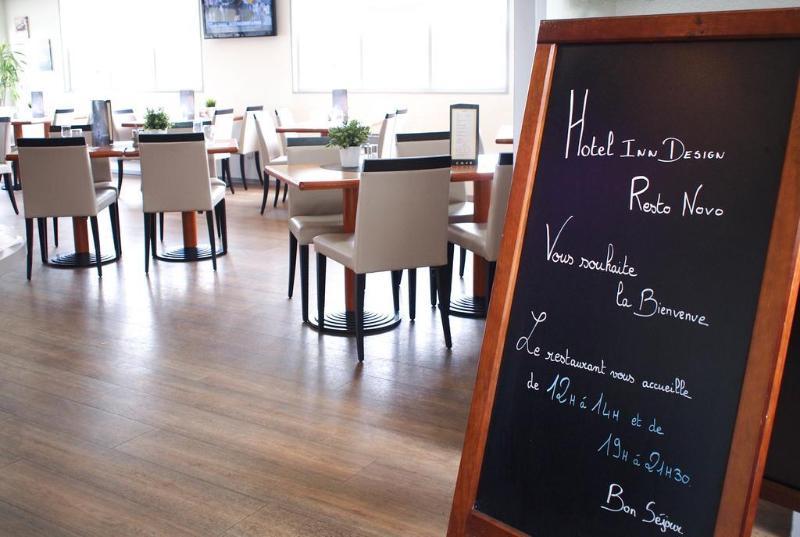 Hotel Inn Design
Resto Novo
Vous souhaite
la Bienvenue
Le restaurant vous accueille
de 12H à 14H et de
19H à 21H30.
Bon Séjour